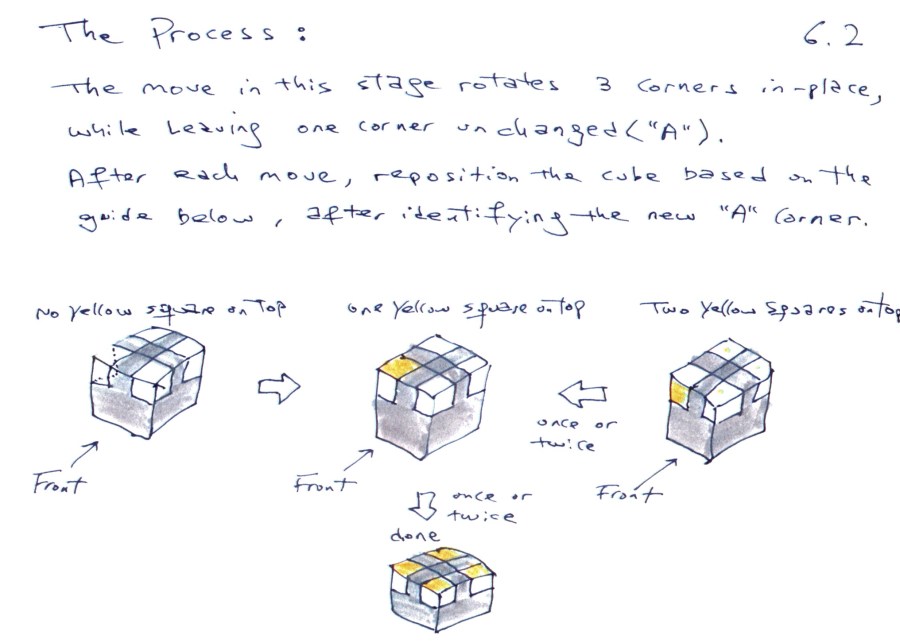 The Process :
6.2
The move in this stage rotates 3 corners in-place,
while leaving one corner unchanged ("A").
After each move, reposition the cube based on the
guide below, after identifying the new "A" corner.
No yellow square on Top
one yellow square on top
Two yellow squares on top
once or
twice
Front
Front
Front
once or
twice
done